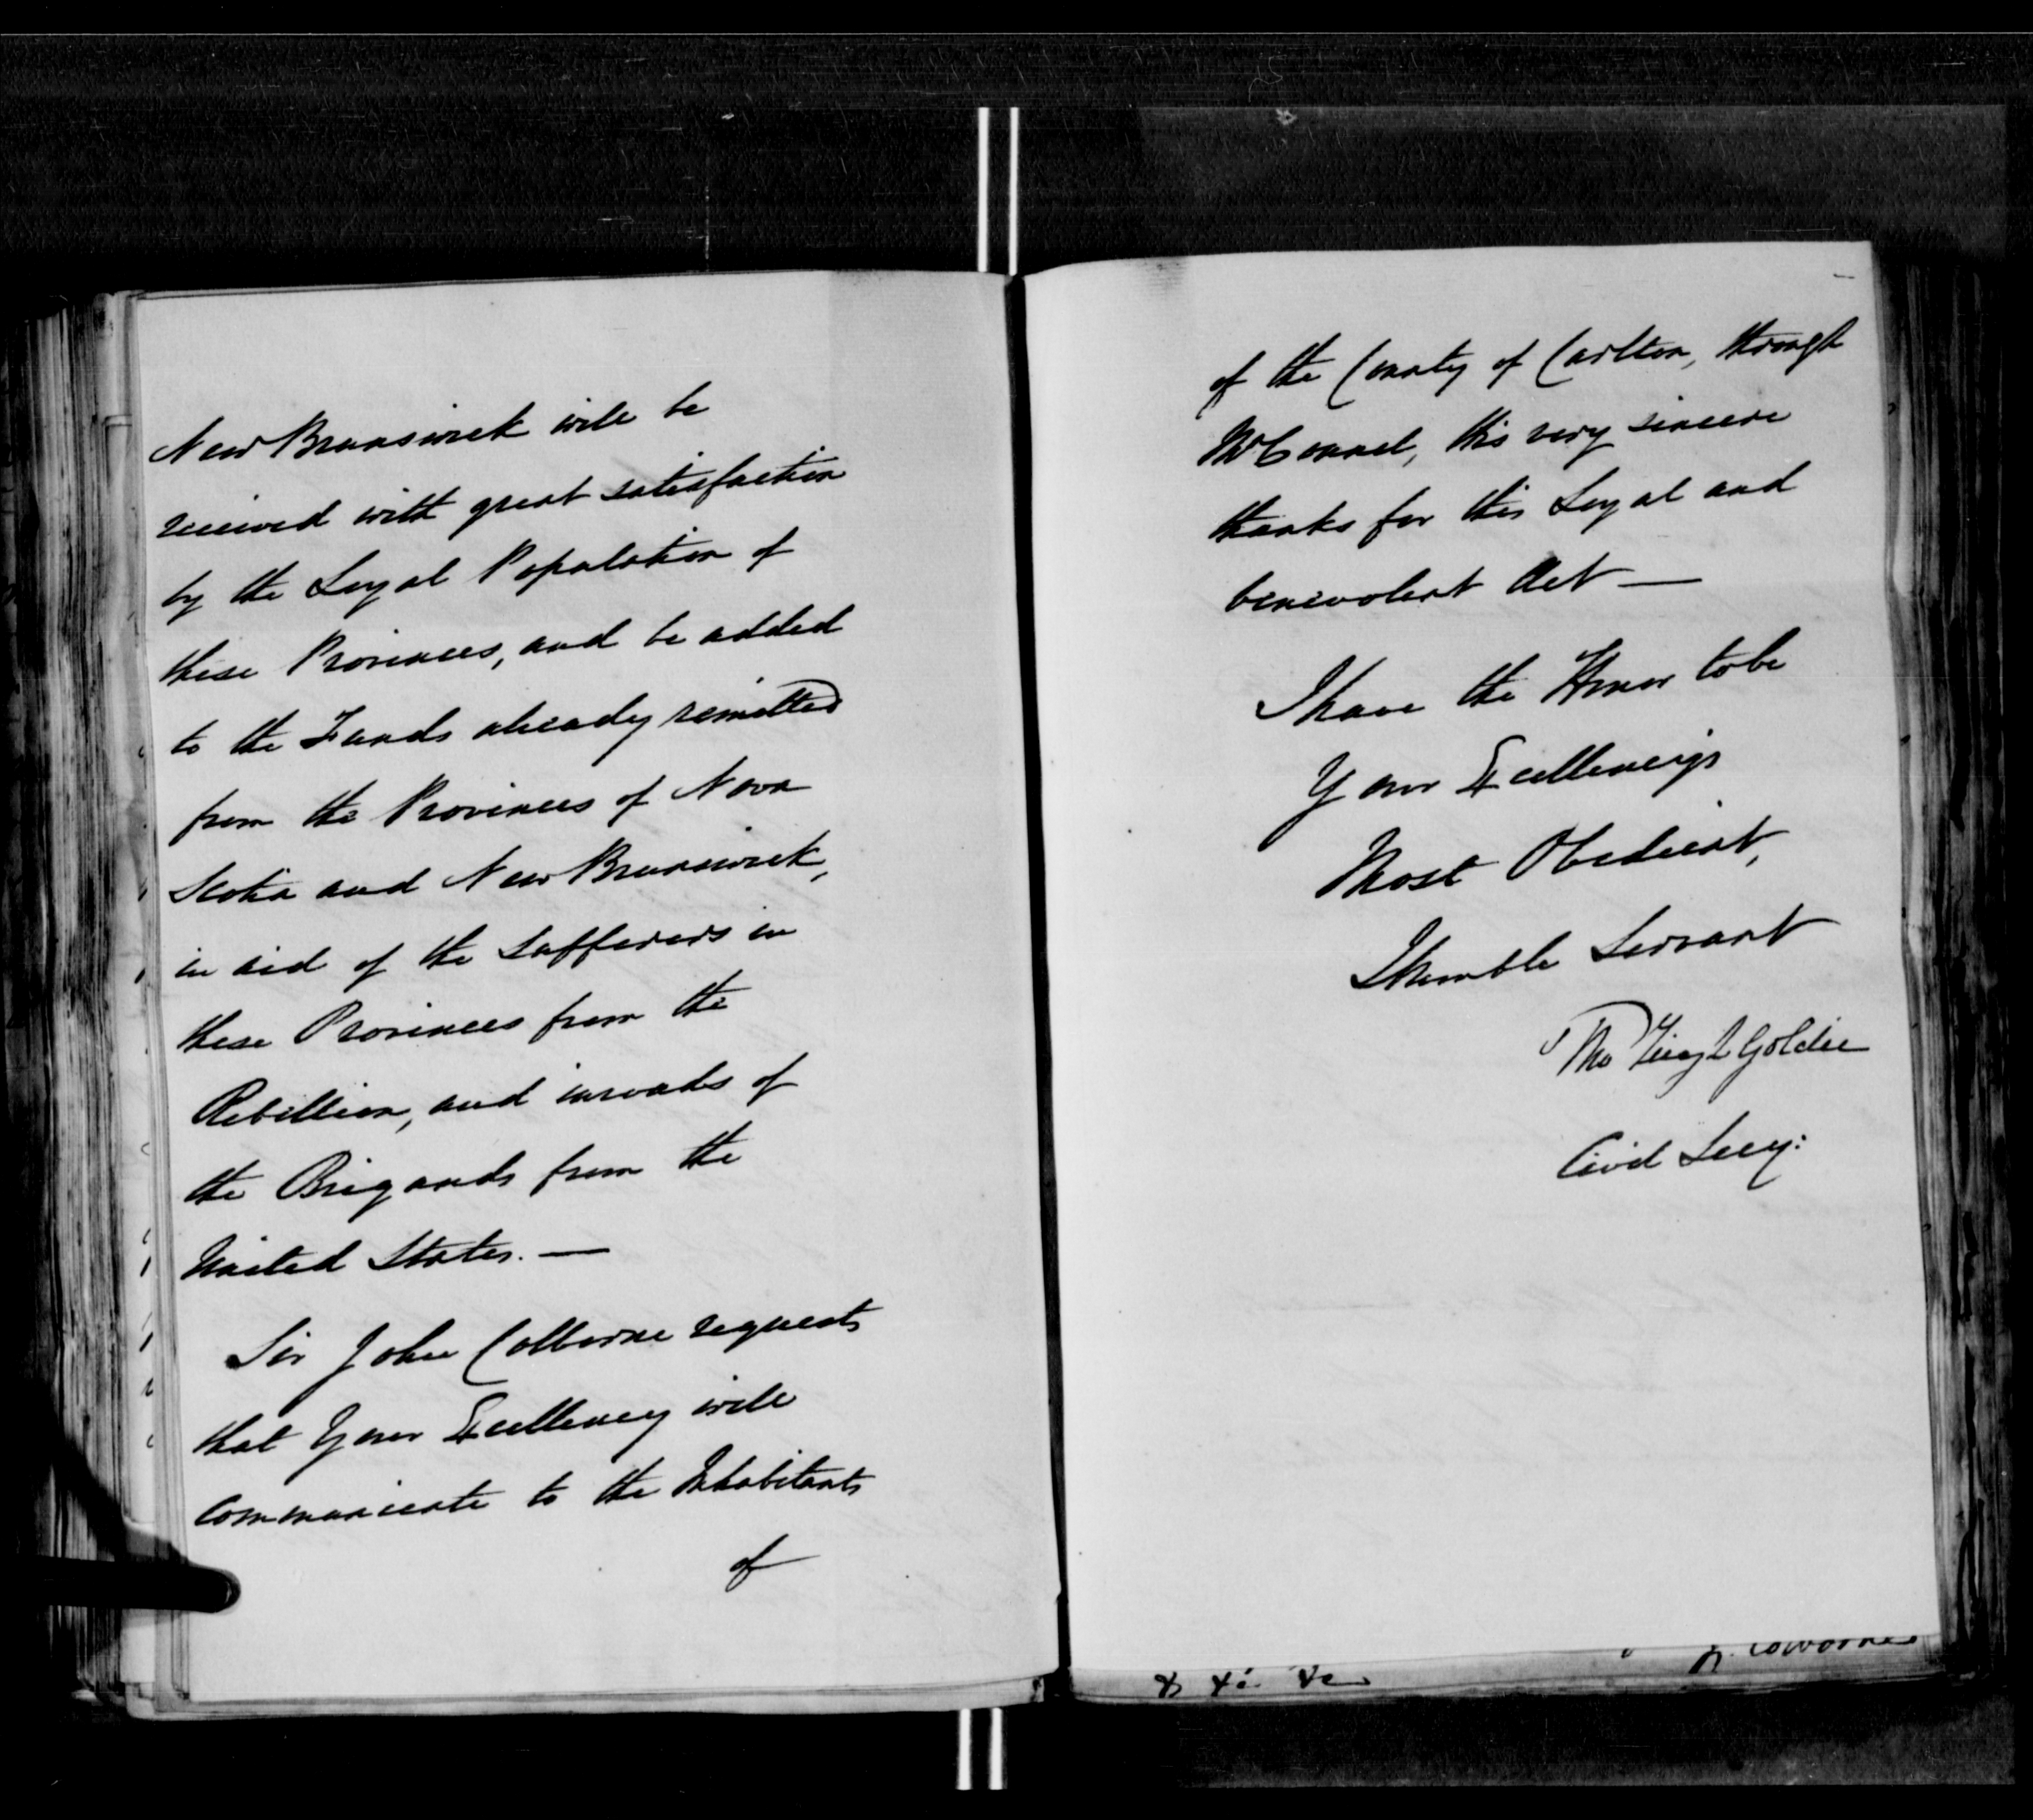 New Brunswick will be
received with great satisfaction
by the Loyal Population of
these Provinces, and be added
to the Funds already remitted
from the Provinces of Nova
Scotia and New Brunswick,
in aid of the Sufferers in
these Provinces from the
Rebellion, and inroads of
the Brigands from the
United States. —
Sir John Colborne requests
that Your Excellency will
communicate to the Inhabitants
of
of the County of Carlton, through
Mr Connel, his very sincere
thanks for this Loyal and
benevolent Act —
I have the Honor to be
Your Excellency's
Most Obedient,
Humble Servant
Tho Leigh Goldie
Civil Secy:
&c &c &c